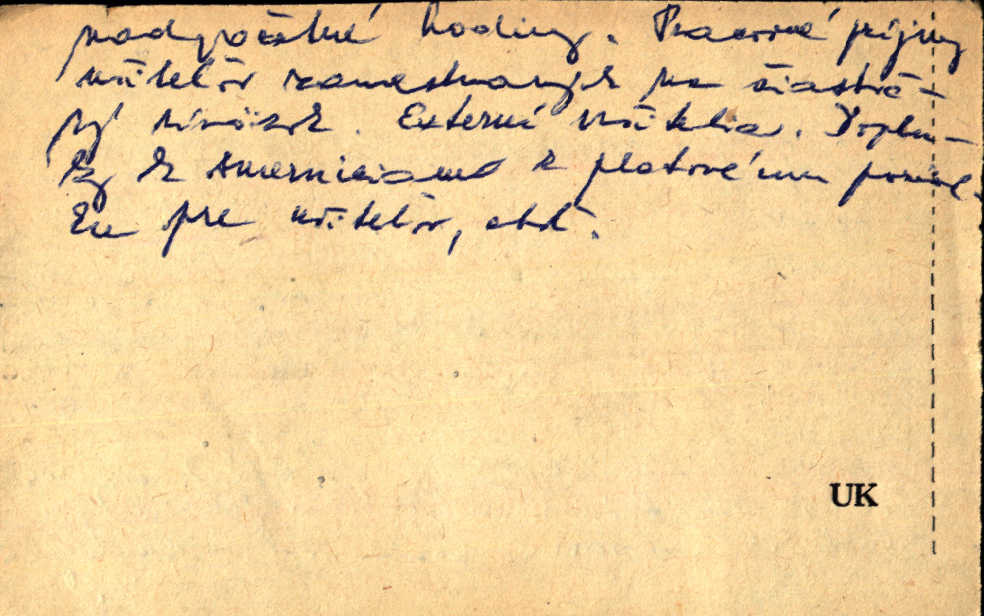 nadpočetné hodiny. Pracovné príjmy
učiteľov zamestnaných na čiastoč-
ný úväzok. Externí učitelia. Dopln-
ky k smerniciam k platovému poria-
ku pre učiteľov, atď.
UK